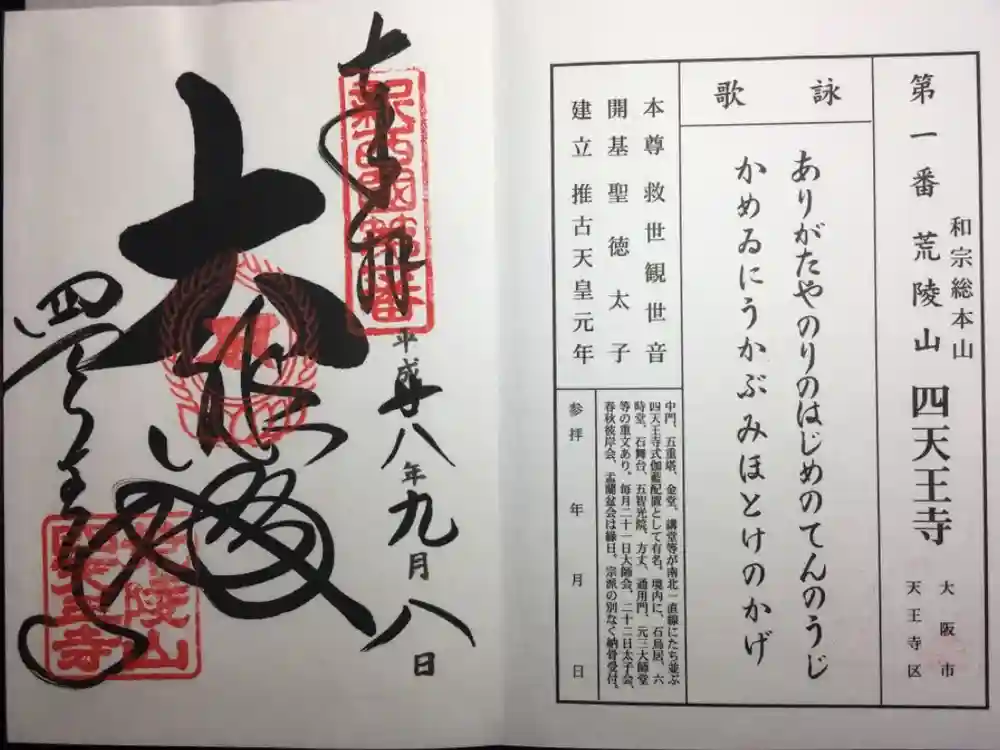 第一番 荒陵山 四天王寺
和宗総本山
大阪市
天王寺区
詠歌
ありがたやのりのはじめのてんのうじ
かめゐにうかぶみほとけのかげ
本尊 救世観世音
開基 聖徳太子
建立 推古天皇元年
中門、五重塔、金堂、講堂等が南北一直線にたち並ぶ
四天王寺式伽藍配置として有名。境内に、石鳥居、六
時堂、石舞台、五智光院、方丈、通用門、元三大師堂
等の重文あり。毎月二十一日大師会、二十二日太子会、
春秋彼岸会、盂蘭盆会は縁日。宗派の別なく納骨受付。
参拝 年 月 日
奉拝
新西国第一番
平成廿八年九月八日
大悲殿
四天王寺
荒陵山
四天王寺